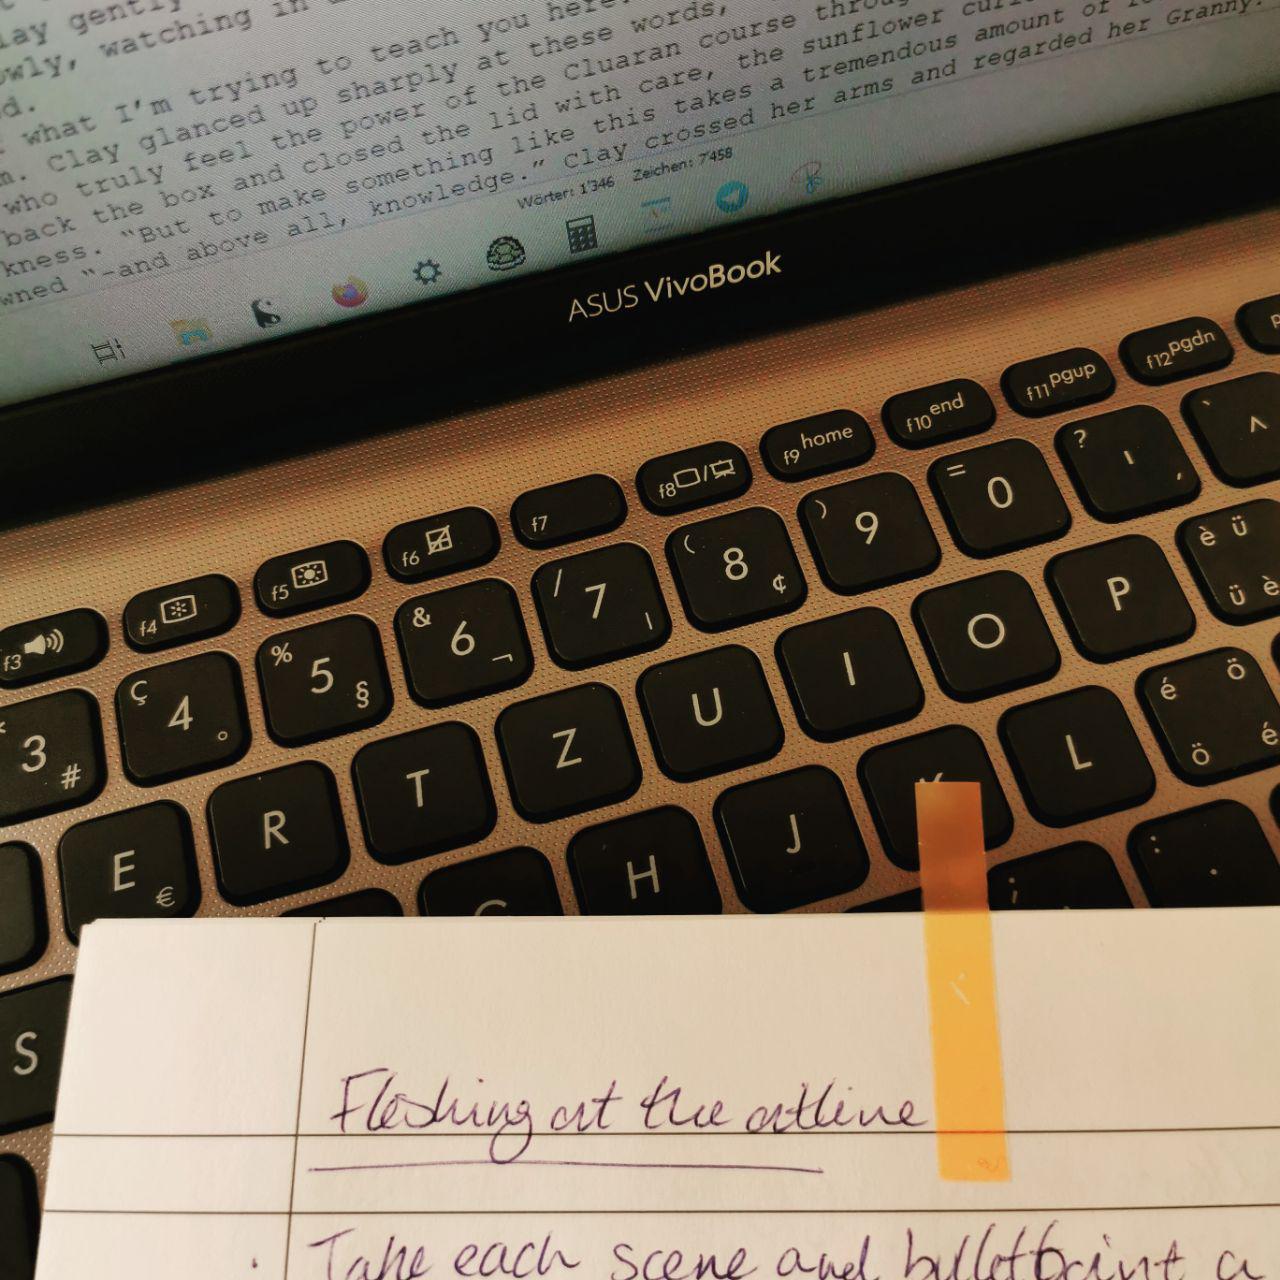 lay gently
owly, watching in
d.
what I'm trying to teach you here.
m. Clay glanced up sharply at these words,
who truly feel the power of the Cluaran course throu
back the box and closed the lid with care, the sunflower cur
kness. "But to make something like this takes a tremendous amount of
wned "-and above all, knowledge." Clay crossed her arms and regarded her Granny.
Wörter: 1'346 Zeichen: 7'458
ASUS VivoBook
f3 f4 f5 f6 f7 f8 f9 home f10 end f11 pgup f12 pgdn
3 # ç 4 ° % 5 § & 6 ¬ / 7 | ( 8 ¢ ) 9 = 0 ? ' ´ ` ^
E € R T Z U I O P è ü ü è
S G H J K L é ö ö é
; : .
Fleshing out the outline
Take each scene and bulletpoint a